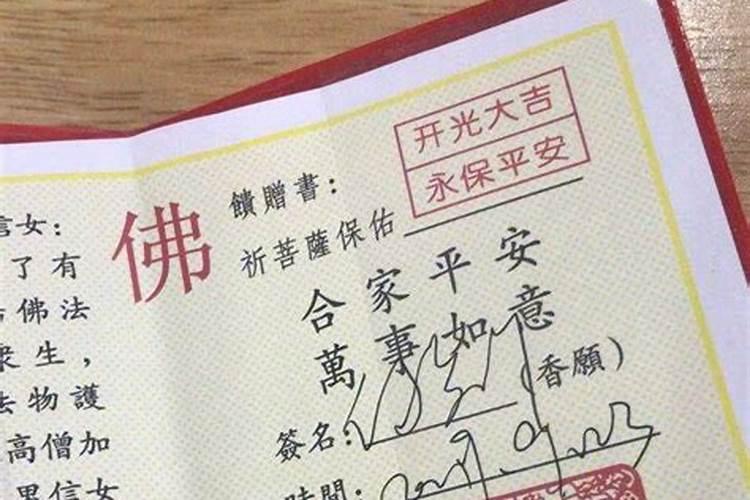 信女：
了有
佛法
衆生，
法物護
高僧加
男信女
佛
饋贈書：
开光大吉
永保平安
祈菩薩保佑
合家平安
萬事如意
(香願)
簽名：
時間：